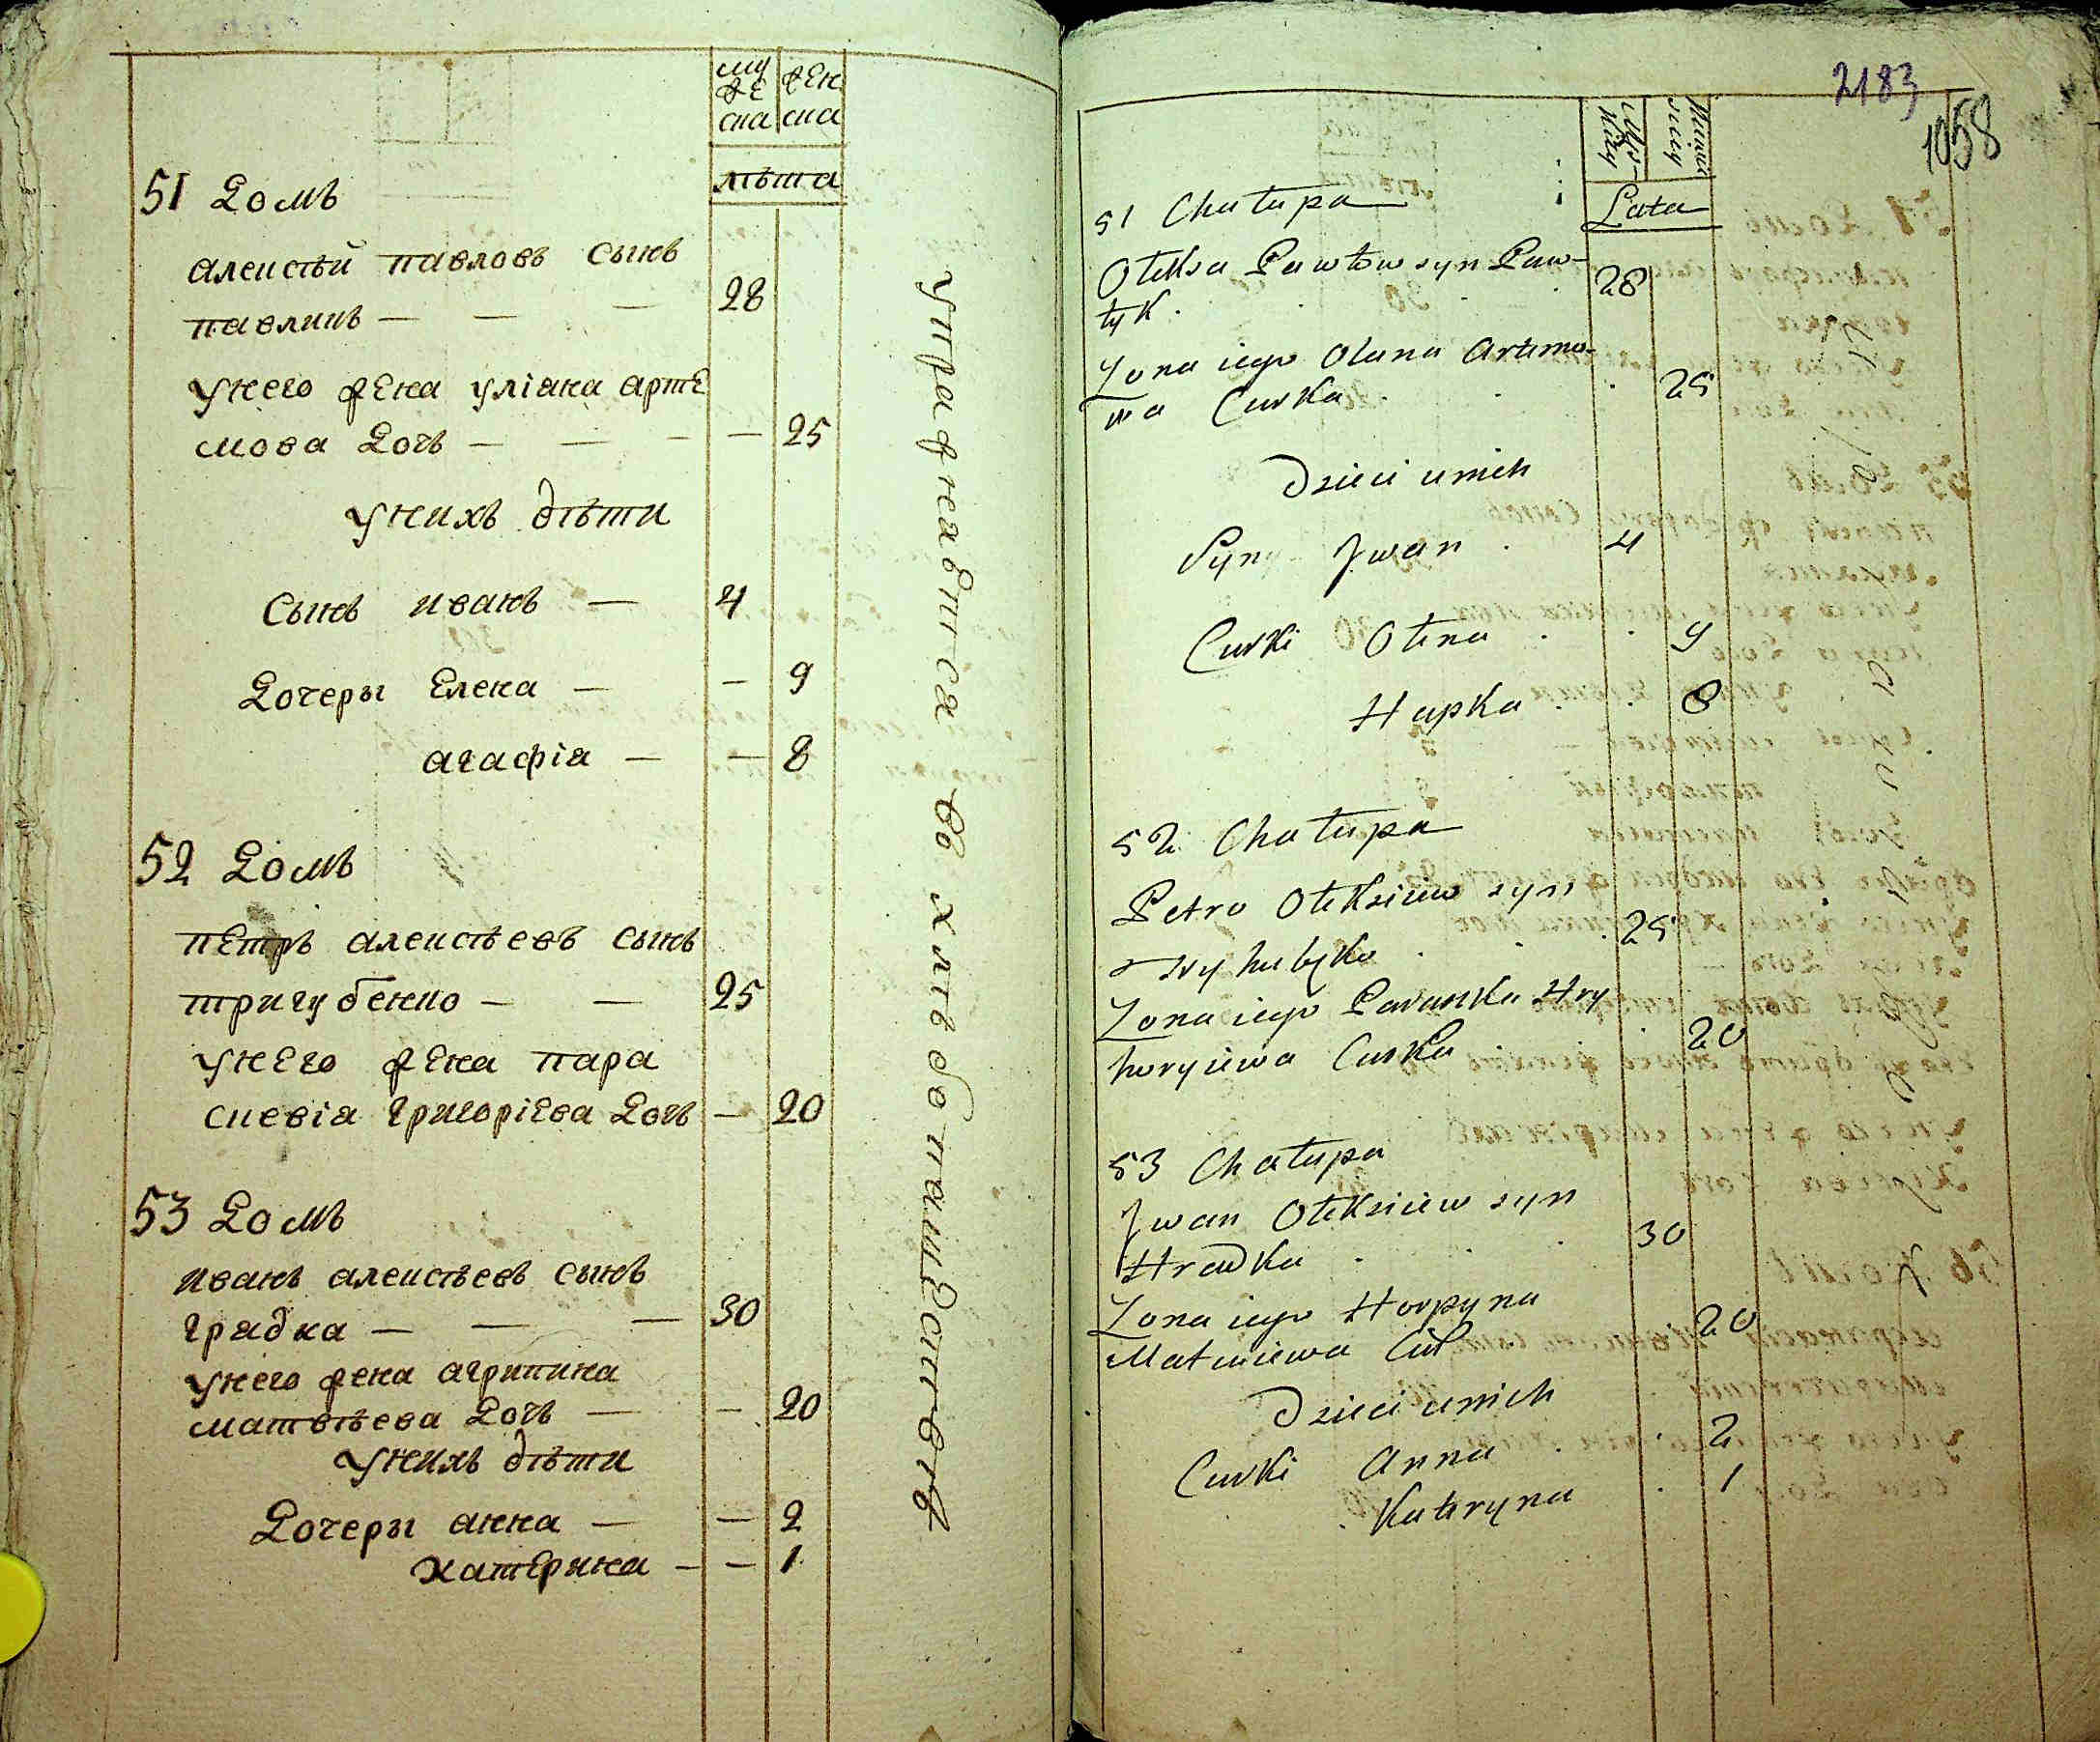 му
же
ска
жен
ска
лѣта
51 Домъ
алексѣй павловъ сынъ
павликъ — — — 28
унего жена уліана арте
мова дочь — — — — 25
унихъ дѣти
сынъ иванъ — 4
дочеры Елена — — 9
агафіа — — 8
52 Домъ
петръ алексѣевъ сынъ
тригубенко — — 25
унего жена пара
скевіа григоріева дочь — 20
53 Домъ
иванъ алексѣевъ сынъ
градка — — — 30
унего жена агрипина
матвѣева дочь — — 20
унихъ дѣти
дочеры анна — — 2
катерина — — 1
упражнаѣтся въ хлѣбопашествѣ
2183
1058
Lata
51 Chałupa
Ołeksa Pawłow syn Paw-
łyk . . . 28
Zona iego Olana Artemo-
wa Curka . . . 25
Dzieci u nich
Syny Jwan . 4
Curki Ołena . . 9
Hapka . . 8
52 Chałupa
Petro Ołeksiiew syn
Tryhubyko . . . 25
Zona iego Paraska Hry
horyiewa Curka . . 20
53 Chałupa
Jwan Ołeksiiew syn
Hradka . . . 30
Zona iego Horpyna
Matwiiewa Cur 20
Dzieci u nich
Curki Anna . . 2
Kateryna . 1